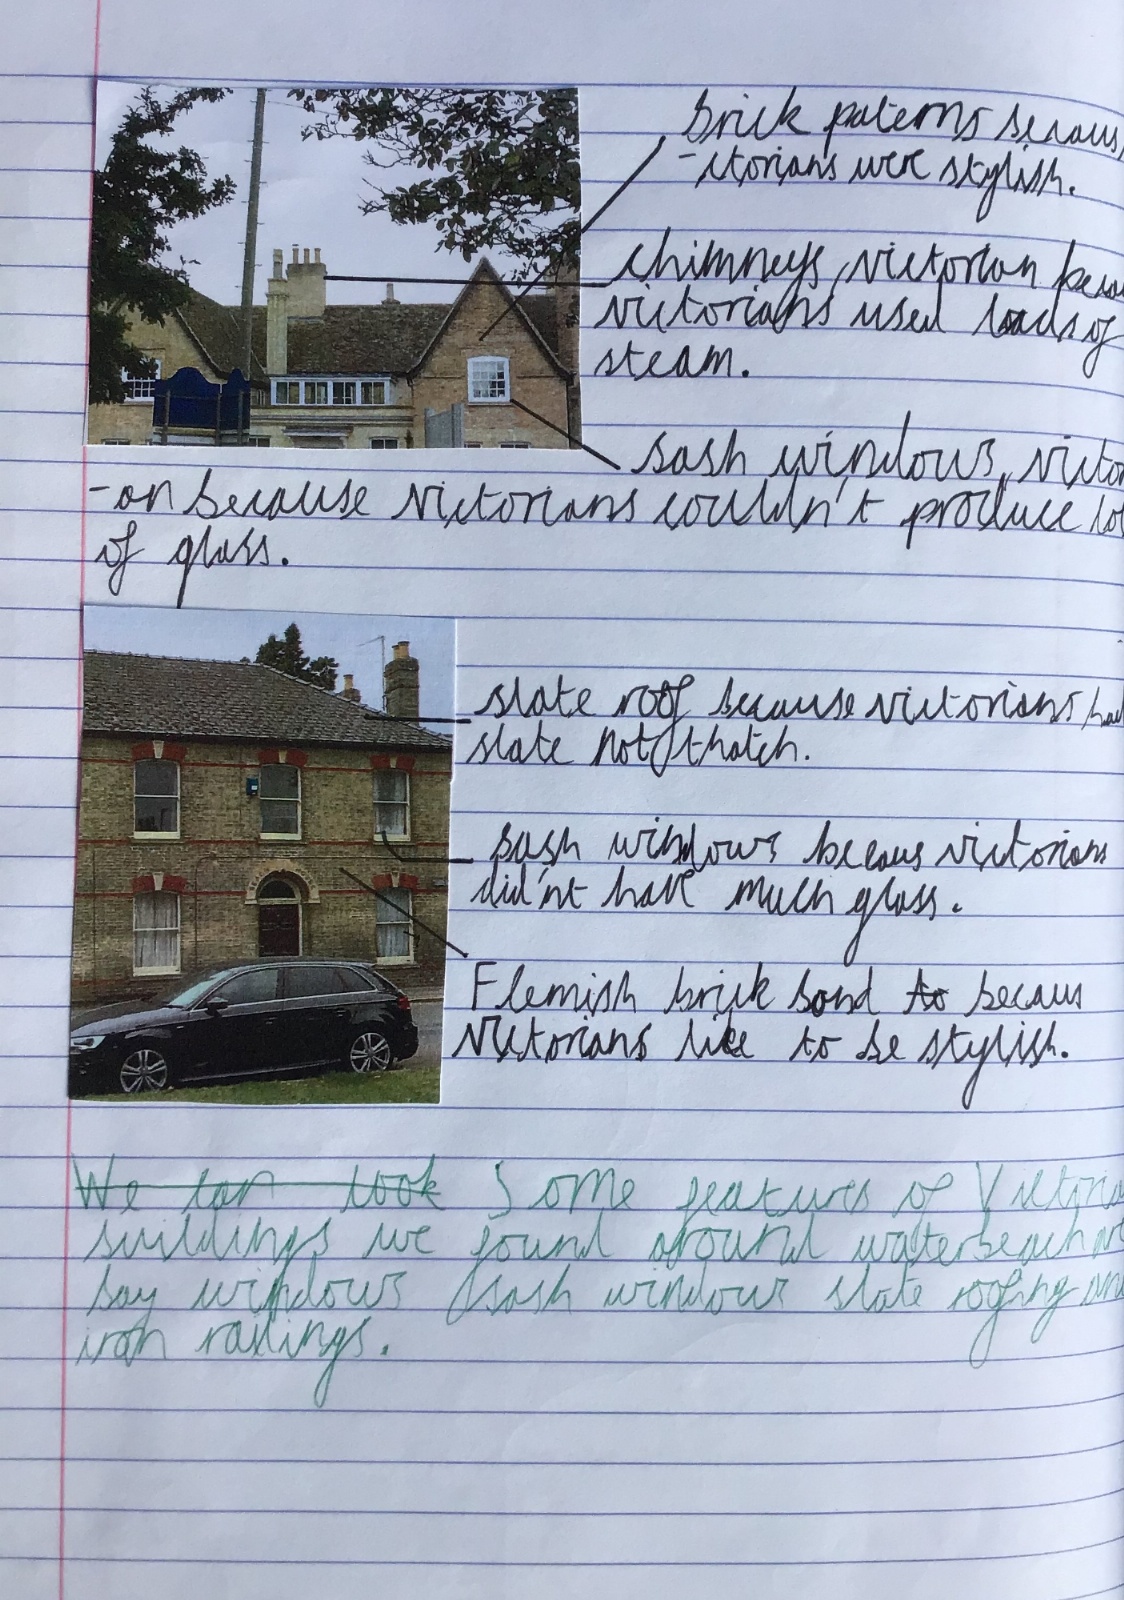 brick paterns becaus
-itorians were stylish.
chimneys, victorian becau
victorians used loads of
steam.
sash windows, victor
-an because victorians couldn't produce lo
of glass.
slate roof because victorians had
slate not thatch.
sash windows becaus victorians
did'nt have much glass.
Flemish brick bond to becaus
Victorians like to be stylish.
We can look Some features of Victoria
buildings we found around waterbeach ar
bay windows sash windows slate roofing an
iron railings.